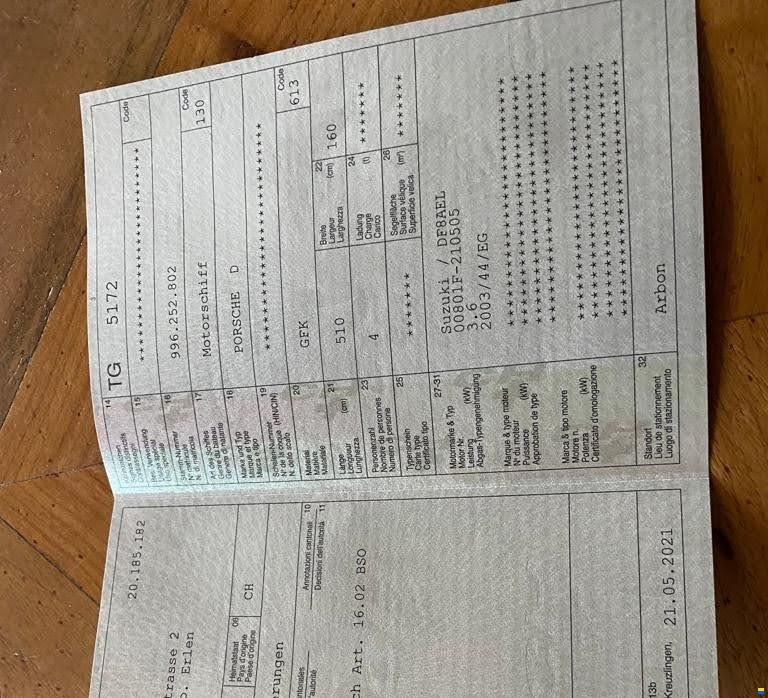 14
TG 5172
15
Code
***********************************
16
996.252.802
17
Art des Schiffes
Genre du bateau
Genere di natante
Motorschiff
Code
130
18
Marke und Typ
Marque et type
Marca e tipo
PORSCHE D
19
Schalen-Nummer
N° de la coque (HIN/CIN)
N. dello scafo
***********************************
20
Material
Matière
Materiale
GFK
Code
613
21
Länge
Longueur
Lunghezza
(cm)
510
22
Breite
Largeur
Larghezza
(cm)
160
23
Personenzahl
Nombre de personnes
Numero di persone
4
24
Ladung
Charge
Carico
(t)
*******
25
Typenschein
Carte type
Certificato tipo
*******
26
Segelfläche
Surface vélique
Superficie velica
(m²)
*******
27-31
Motormarke & Typ
Motor Nr.
Leistung (kW)
Abgas-Typengenehmigung
Suzuki / DF8AEL
00801F-210505
3.6
2003/44/EG
Marque & type moteur
N° du moteur
Puissance (kW)
Approbation de type
***********************************
***********************************
***********************************
***********************************
Marca & tipo motore
Motore n.
Potenza (kW)
Certificato d'omologazione
***********************************
***********************************
***********************************
***********************************
32
Standort
Lieu de stationnement
Luogo di stazionamento
Arbon
20.185.182
trasse 2
Erlen
Heimatstaat
Pays d'origine
Paese d'origine
06
CH
rungen
Annotazioni cantonali 10
Decisioni dell'autorità 11
ntonales
autorité
ch Art. 16.02 BSO
13b
Kreuzlingen, 21.05.2021